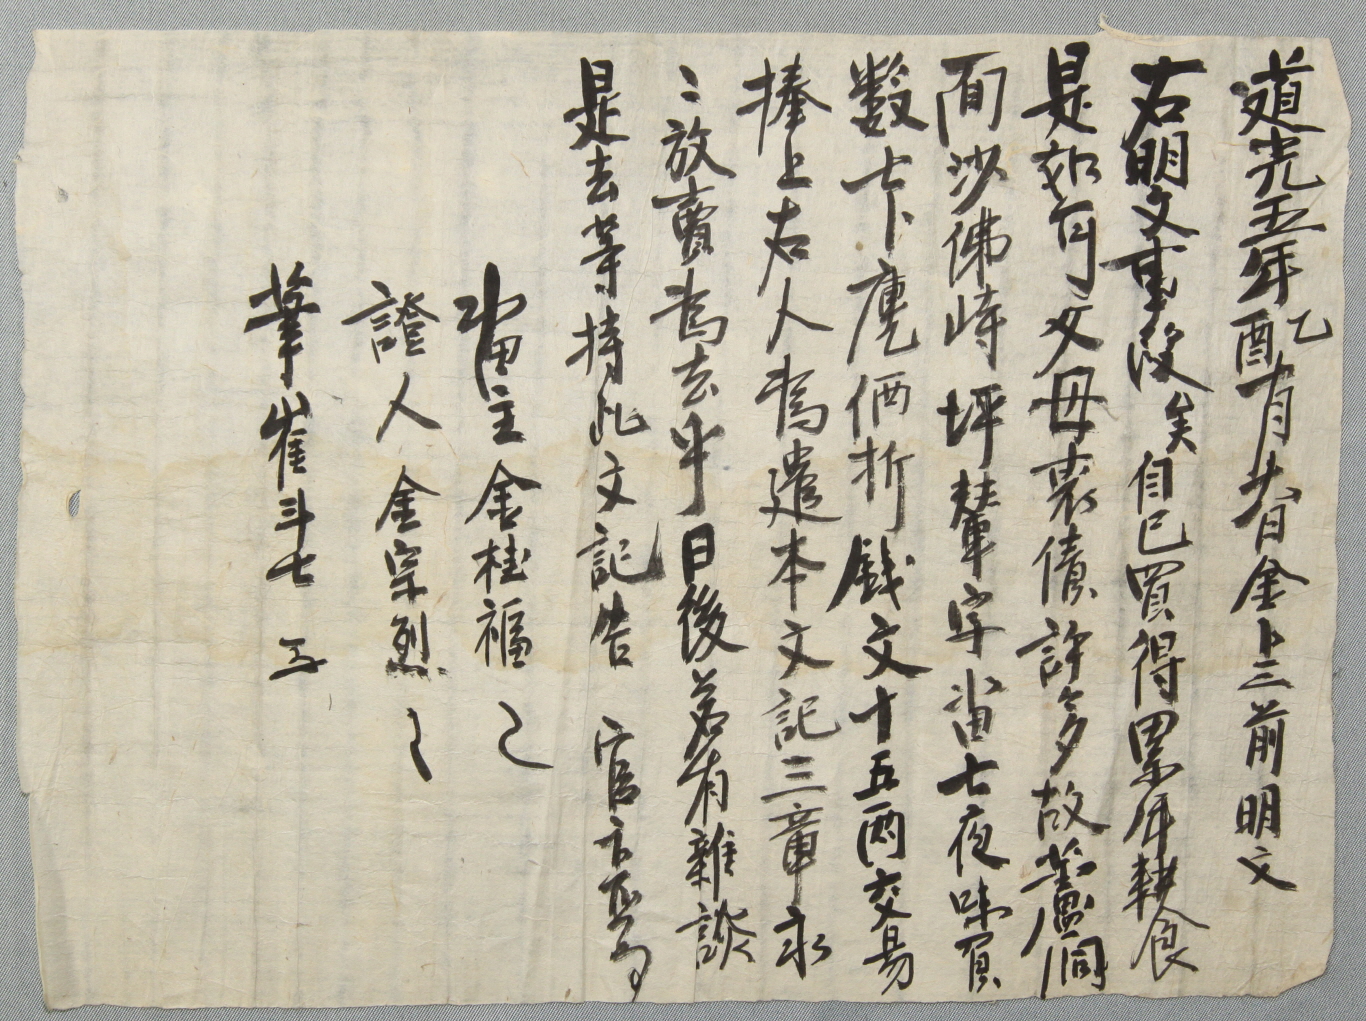 道光五年乙酉二月廿五日金上三前明文
右明文事段矣自己買得累年耕食
是如可父母喪債許多故蘆洞
面沙佛峙坪輦字畓七夜味負
数七卜庫価折錢文十五兩交易
捧上右人爲遣本文記三章永
永放賣爲去乎日後若有雜談
是去等持此文記告官卞正事
畓主金桂福
證人金宗烈
筆崔斗七